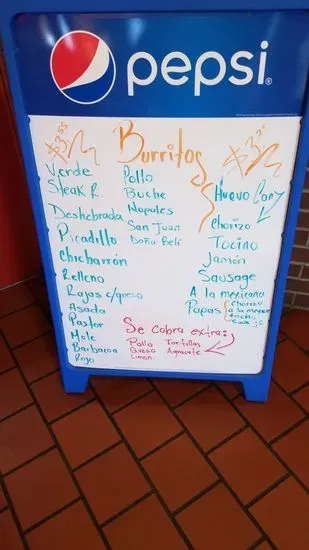 pepsi
Burritos
Verde
Steak R.
Deshebrada
Picadillo
Chicharrón
Relleno
Rajas c/queso
Asada
Pastor
Mole
Barbacoa
Rojo
Pollo
Buche
Nopales
San Juan
Doña Beli
Huevo Con
Chorizo
Tocino
Jamón
Sausage
A la mexicana
Papas
Chorizo
a la mexicana
Se cobra extra:
Pollo Tortillas
Queso Aguacate
Limon